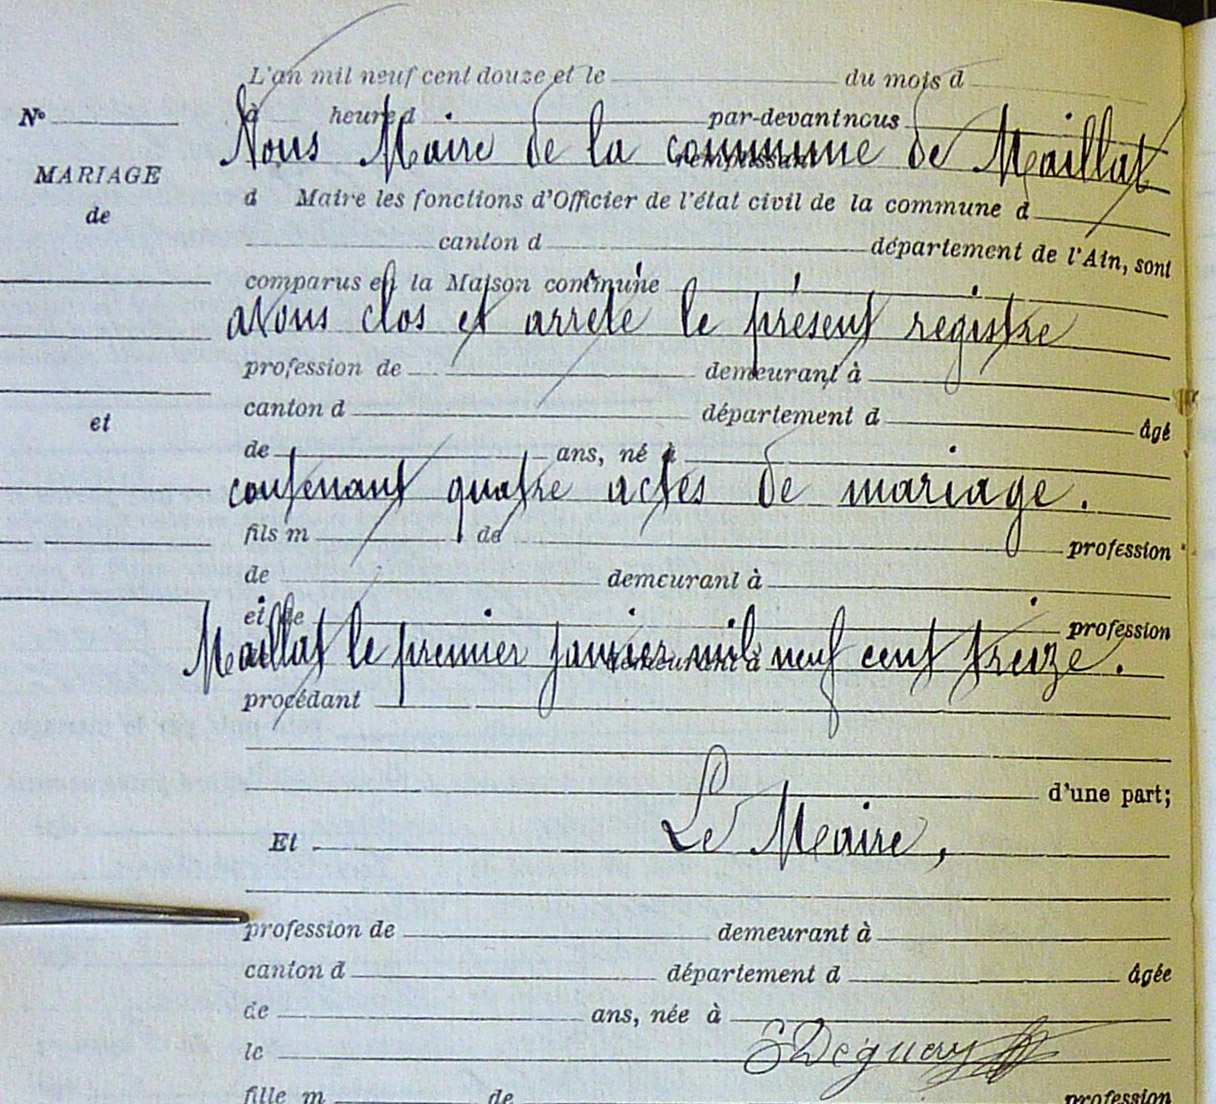 L'an mil neuf cent douze et le du mois d
N° à heure d par-devant nous
Nous Maire de la commune de Maillat
remplissant
MARIAGE
d Maire les fonctions d'Officier de l'état civil de la commune d
de
canton d département de l'Ain, sont
comparus en la Maison commune
avons clos et arrêté le présent registre
profession de demeurant à
canton d département d âgé
et
de ans, né à
contenant quatre actes de mariage.
fils m de profession
de demeurant à
et de profession
Maillat le premier janvier mil neuf cent treize.
demeurant à
procédant
d'une part;
Le Maire,
Et
profession de demeurant à
canton d département d âgée
de ans, née à
le
fille m de profession